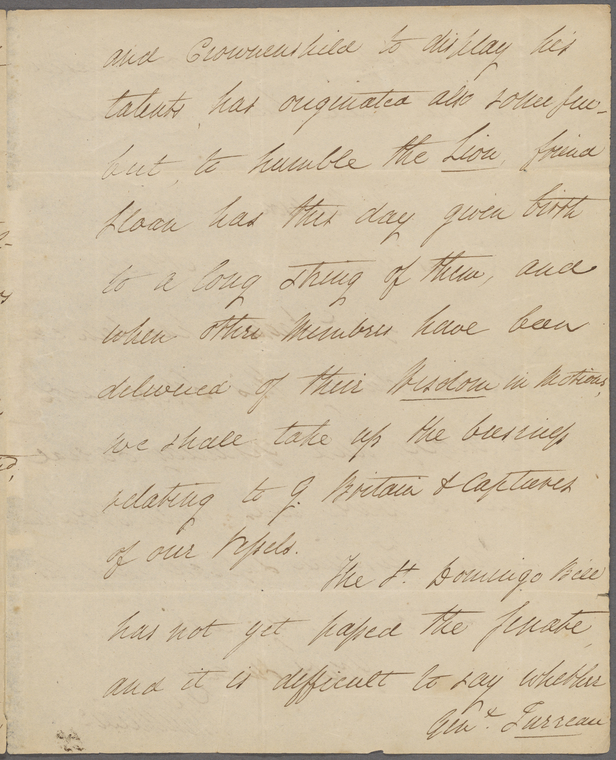 and Crowninshield to display his
talents has originated also some few –
but, to humble the Lion, friend
Sloan has this day given birth
to a long string of them, and
when other Members have been
delivered of their Wisdom in Motions,
we shall take up the business
relating to G. Britain & Captures
of our Vessels.
The St. Domingo Bill
has not yet passed the Senate,
and it is difficult to say whether
Genl. Turreau